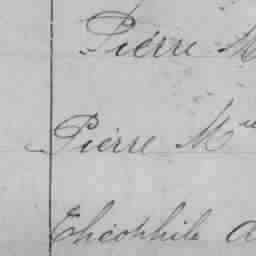 Pierre M
Pierre M^re
Théophile A